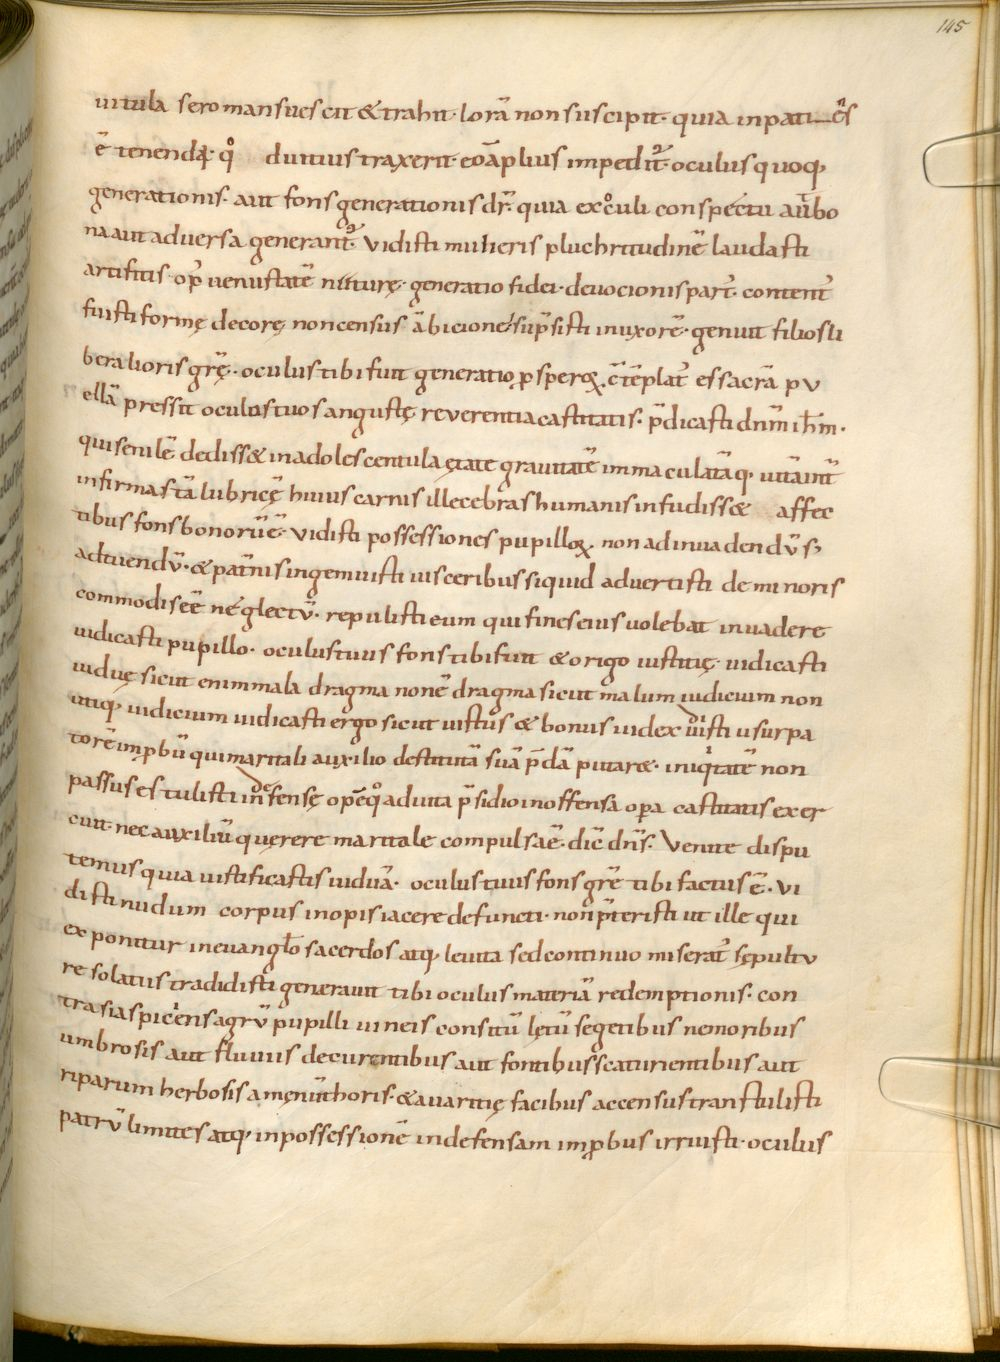 145
uitula sero mansuescit & trahit· lorā non suscipit· quia inpatiēs
ē tenendą· qͦ diutius traxerit· eo āplius impedit᷑· oculus quoq;
generationis· aut fons generationis dr̄· quia ex oculi conspectu aut̄ bo
na aut aduersa generant᷑· vidisti mulieris pluchritudinē laudasti
artificis· op̄ uenustatē naturę· generatio fidei· deuocionis part᷑· content᷑
fuisti formę decorę non census ābicione sūpsisti in uxorē· genuit filios li
beralioris grę̄· oculus tibi fuit generatio ꝓsperoꝝ. c̄tēplat᷑ es sacrā pu
ellā pressit oculos tuos angustę reuerentia castitatis· p̄dicasti dnm̄ ih̄m·
qui senilē dediss& in adolescentula ętate grauitatē immaculatāq; uitā int̄
infirma stā lubricę huius carnis illecebras humanis infudiss& affec
tibus fons bonorū ē· vidisti possessiones pupilloꝝ non ad inuadendū s;
ad tuendū· & pat̄nis ingemuisti uisceribus siquid aduertisti de minoris
commodis eē neglectū· repulisti eum qui fines eius uolebat inuadere
iudicasti pupillo· oculus tuus fons tibi fuit & origo iustitię· iudicasti
uiduę sicut enim mala dragma non ē dragma sicut malum iudicium non
utiq; iudicium iudicasti ergo sicut iustus & bonus iudex uisti usurpa
torē imp̱bū qui maritali auxilio destitutā suā p̄dā putar&· iniqͥtatē non
passus es tulisti indefensę opē qͦ adiuta p̄sidio inoffensa oꝑa castitatis exer
cuit· nec auxiliū quęrere maritale compulsa ē· dic̄ dn̄s· Venite dispu
temus quia iustificastis uiduā· oculus tuus fons grę̄ tibi factus ē· vi
disti nudum corpus inopis iacere defuncti· non p̄teristi ut ille qui
exponitur in euangl̄o sacerdos atq; leuita sed continuo miserat᷑ sępultu
re solatiis tradidisti generauit tibi oculus materiā redemptionis· con
tra si aspiciens agrū pupilli uineis consitū lętū segetibus nemoribus
umbrosis aut fluuiis decurentibus aut fontibus scaturientibus aut
riparum herbosis amęnū thoris· & auaritię facibus accensus transtulisti
patrū limites atq; in possessionē indefensam imp̱bus irruisti· oculus